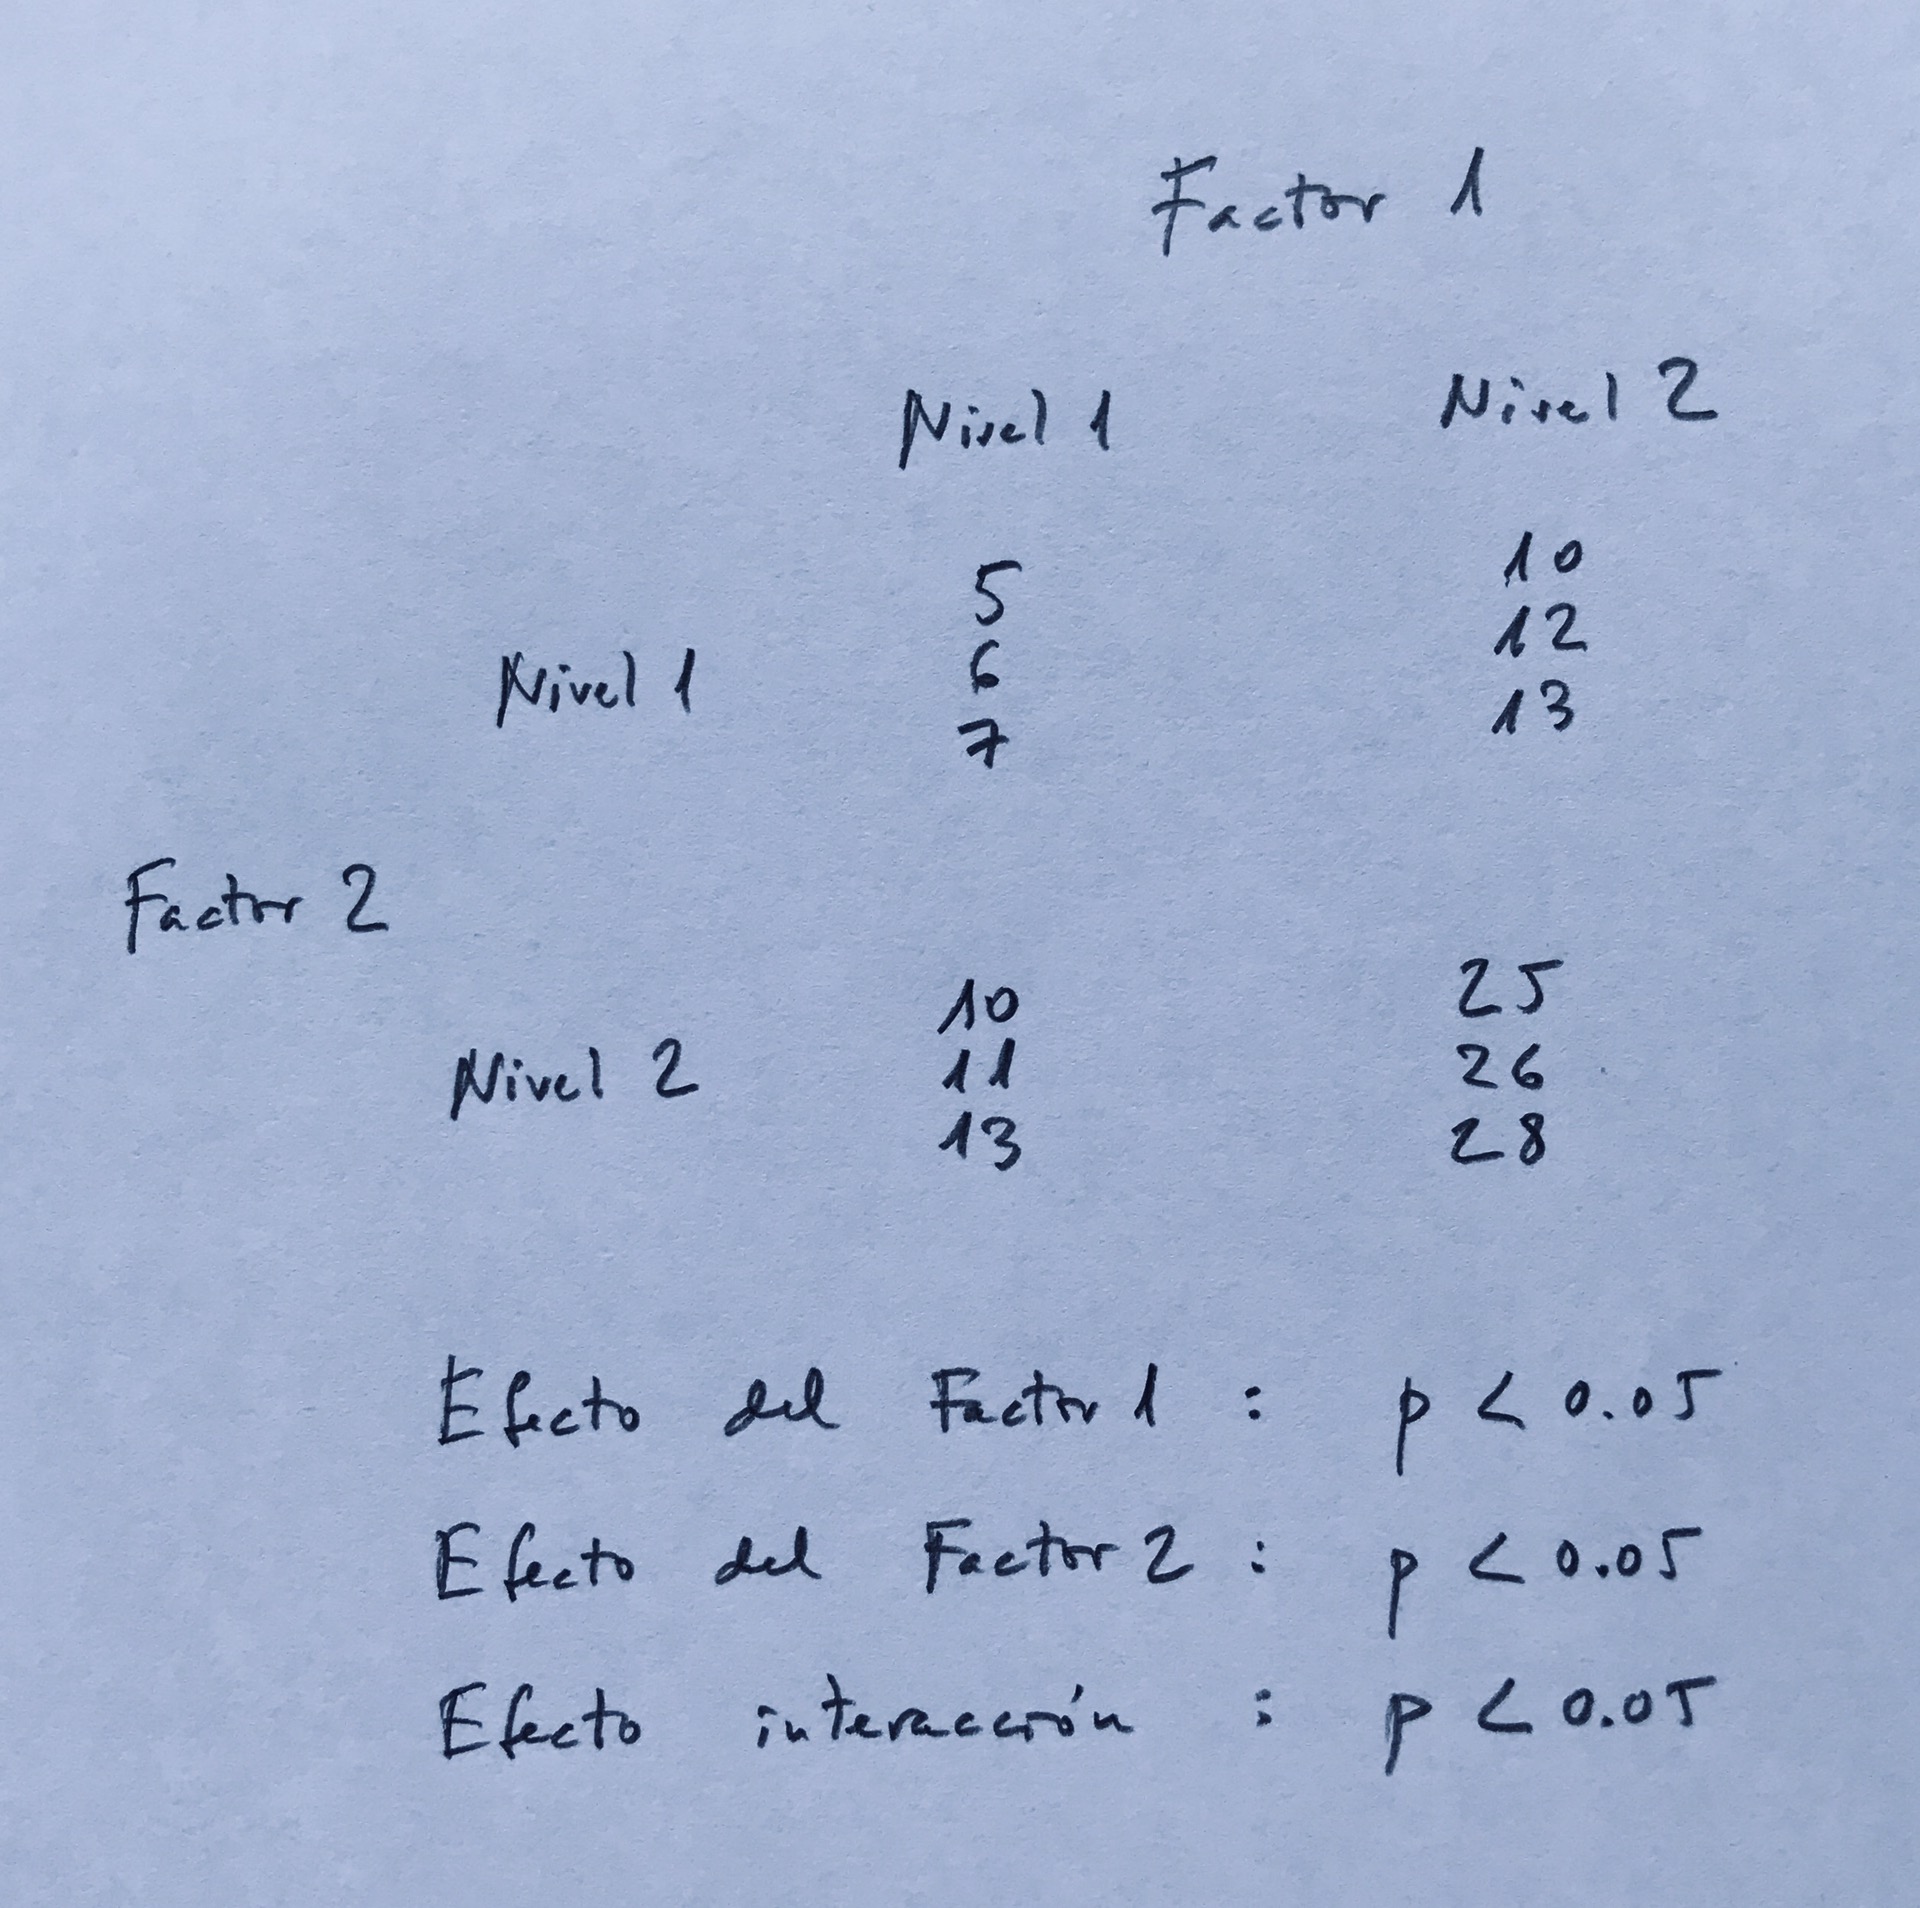 Factor 1
Nivel 1 Nivel 2
5 10
6 12
Nivel 1 7 13
Factor 2
10 25
Nivel 2 11 26
13 28
Efecto del Factor 1 : p < 0.05
Efecto del Factor 2 : p < 0.05
Efecto interacción : p < 0.05